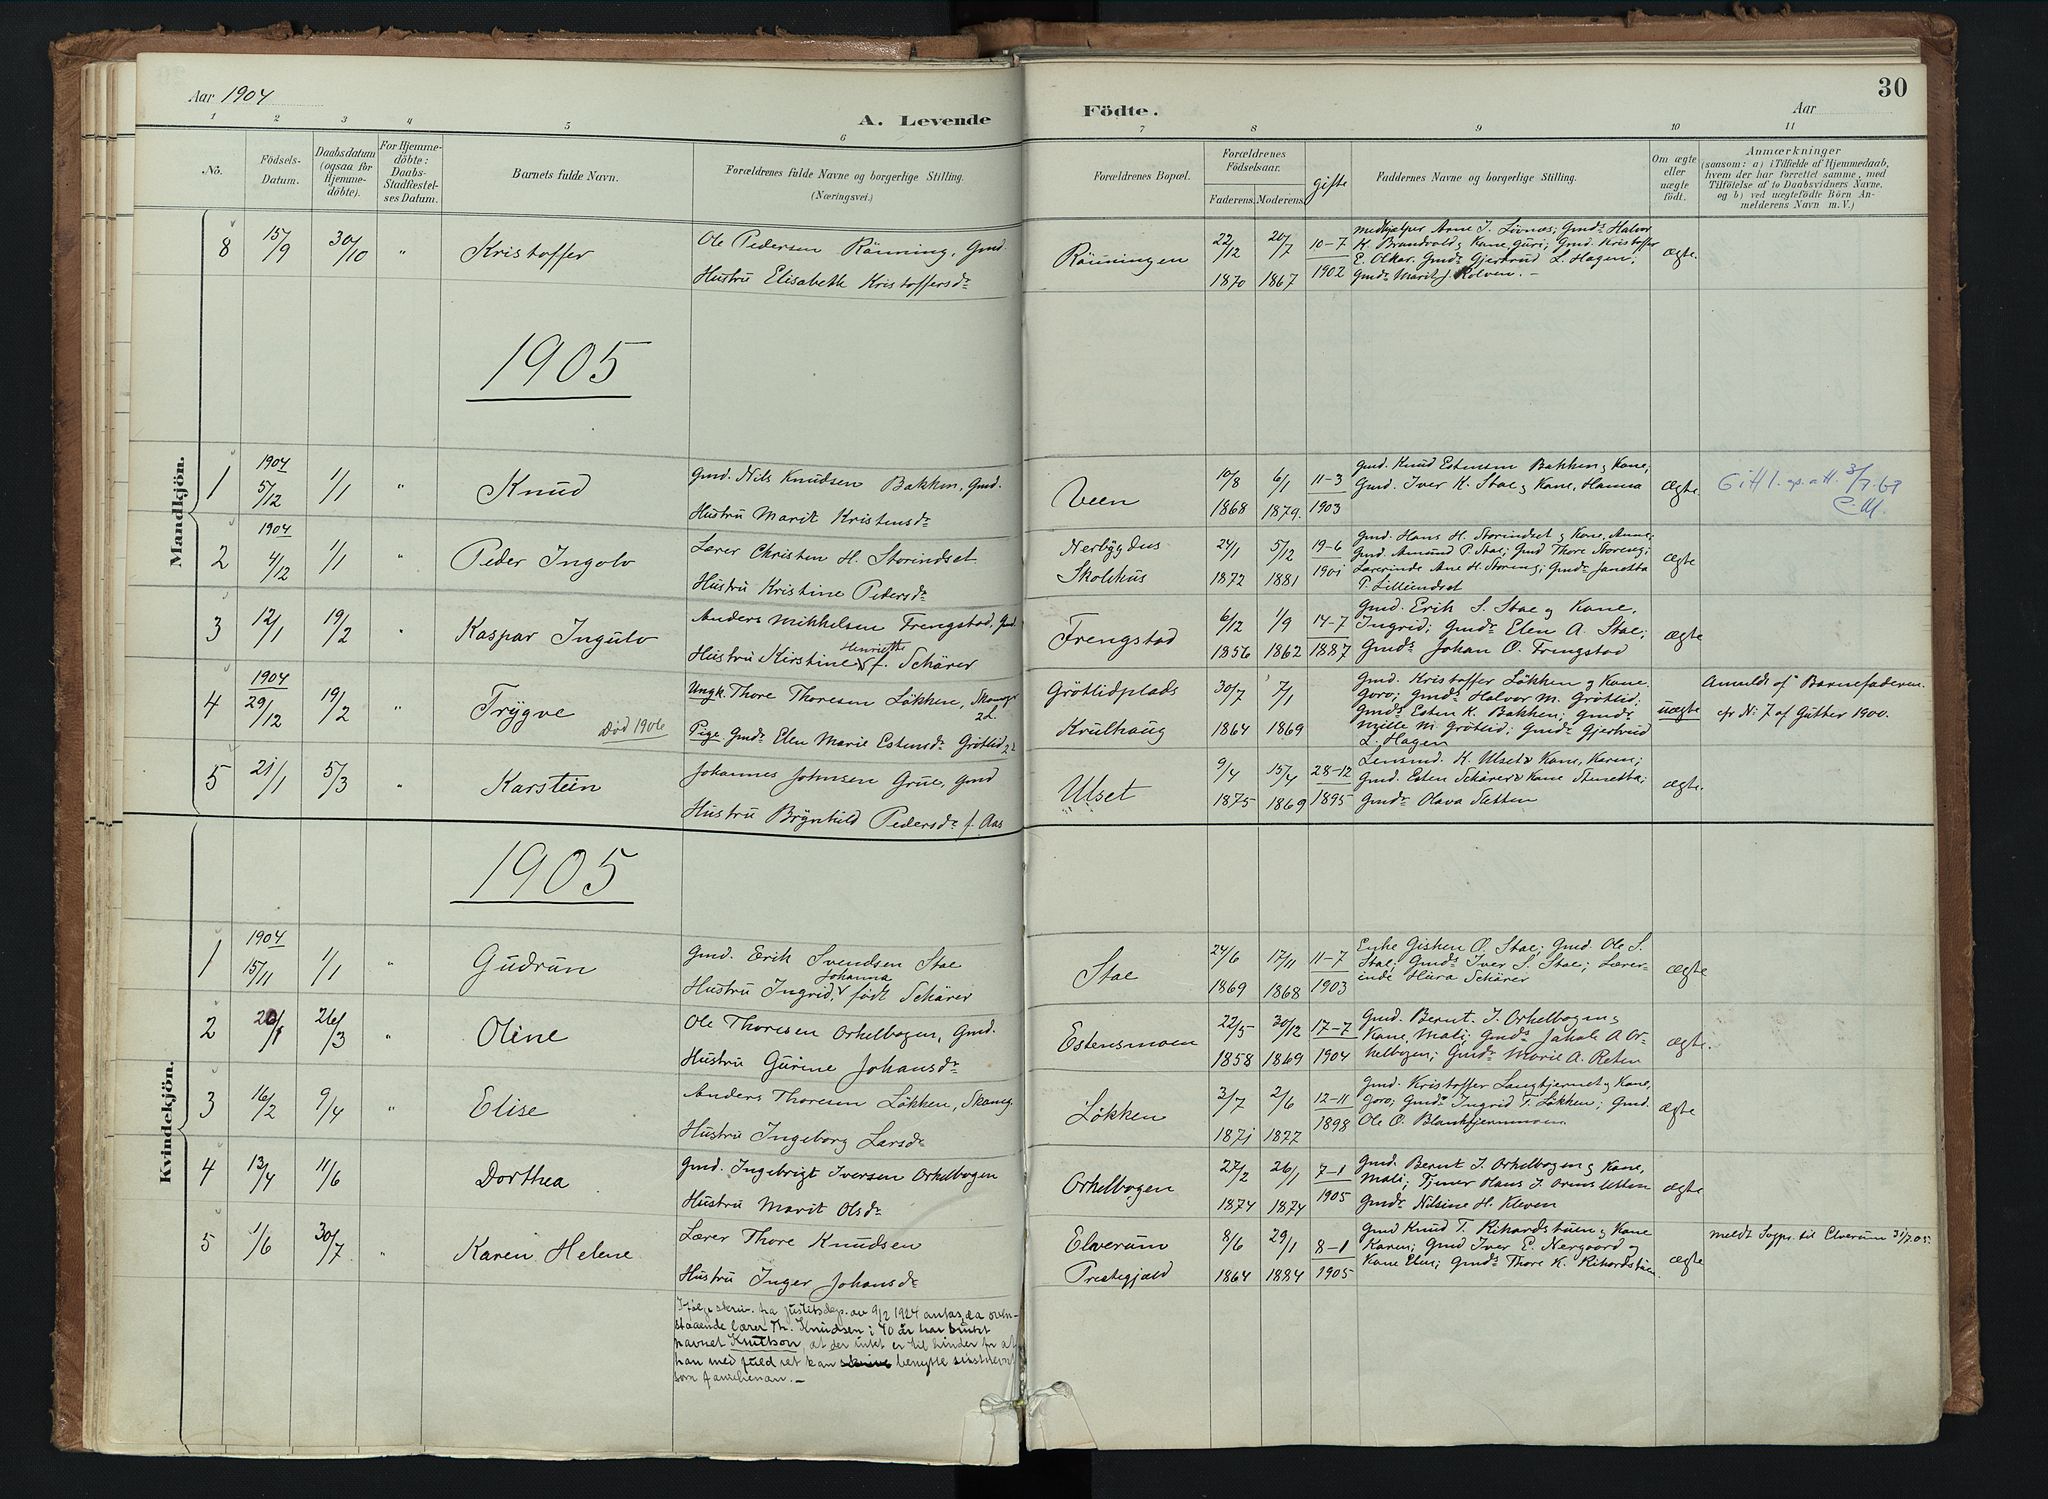 Aar 1904
A. Levende
Födte.
Aar
30
1 2 3 4 5 6 7 8 9 10 11
No.
Födsels-
Datum.
Daabsdatum
(ogsaa for
Hjemme-
döbte).
For Hjemme-
döbte:
Daabs-
Stadfæstel-
ses Datum.
Barnets fulde Navn.
Forældrenes fulde Navne og borgerlige Stilling.
(Næringsvei.)
Forældrenes Bopæl.
Forældrenes
Födselsaar.
Faderens. Moderens.
gifte
Faddernes Navne og borgerlige Stilling.
Om ægte
eller
uægte
födt.
Anmærkninger
(saasom: a) i Tilfælde af Hjemmedaab,
hvem der har forrettet samme, med
Tilföielse af to Daabsvidners Navne,
og b) ved uægtefödte Börn An-
melderens Navn m. V.)
Mandkjön.
8 15/9 30/10 " Kristoffer
Ole Pedersen Rönning, Gmd.
Hustru Elisabeth Kristoffersdr
Rönningen
22/12 1870
20/7 1867
10-7 1902
Medhjælper Arne J. Lövnæs; Gmds Halvor
H. Brandvold & Kone Guri; Gmd. Kristoffer
E. Olkar. Gmdr Gjertrud L. Hagen;
Gmdr Marit J. Kolven.-
Ægte.
1905
1 1904 5/12 1/1 " Knud
Gmd. Nils Knudsen Bakken, Gmd.
Hustru Marit Kristensdr
Veen
10/8 1868
6/1 1879.
11-3 1903
Gmd. Knud Estensen Bakken & Kone,
Gmd. Iver K. Stae & Kone, Hanna
ægte
3/7 67
2 1904 4/12 1/1 " Peder Ingolv
Lærer Christen H. Storindset
Hustru Kristine Pedersdr
Nerbygdus
Skolehus
24/1 1872
5/12 1881
19-6 1901
Gmd. Hans H. Storindset & Kone, Anne;
Gmd. Amund P. Stae; Gmd Thore Storeng;
Lærerinde Ane H. Storeng; Gmdr Janetta
P. Lilleindset
ægte
3 12/1 19/2 " Kaspar Ingulv
Anders Mikkelsen Frengstad, Gmd.
Hustru Kirstine Henriette f. Schärer
Frengstad
6/12 1856
1/9 1862
14-7 1887
Gmd. Erik S. Stae & Kone,
Ingrid; Gmdr Elen A. Stae;
Gmds Johan O. Frengstad
ægte
4 1904 29/12 19/2 " Trygve
Död 1906
Ungk. Thore Thoresen Løkken, Skomager
Pige Gmdr Elen Marie Estensdr Grötlid
Grötlidplads
Krulhaug
30/7 1864
7/1 1869
Gmd. Kristoffer Løkken & Kone,
Goro; Gmds Halvor M. Grötlid;
Gmds Esten K. Bakken; Gmdr
Mille M. Grötlid; Gmdr Gjertrud
L. Hagen
uægte
Anmeldt af Barnefaderen.
cfr No 7 af Gutter 1900.
5 21/1 5/3 " Karstein
Johannes Johnsen Grue, Gmd
Hustru Brynhild Pedersdr f. Aas
Ulset
9/4 1875
15/4 1869
28-12 1895
Lensmd. K. Ulset & Kone, Karen;
Gmd. Esten Schärer & Kone
Gmdr Olava Sletten
ægte.
Kvindekjön.
1905
1 1904 15/11 1/1 " Gudrun
Gmd. Erik Svendsen Stae
Hustru Ingrid Johanna, födt Schärer
Stae
24/6 1869
17/11 1868
11-7 1903
Enke Gisken O. Stae; Gmd. Ole S.
Stae; Gmds Iver S. Stae; Lærer-
inde Schärer
ægte
2 20/1 26/3 " Oline
Ole Thoresen Orkelbogen, Gmd.
Hustru Gurine Johansdr
Estensmoen
22/5 1858
30/12 1869
17-7 1904
Gmd. Bernt. J. Orkelbogen &
Kone, Mali; Gmds Jakob A Or-
kelbogen; Gmdr Marie A. Reten
ægte.
3 16/2 9/4 " Elise
Anders Thoresen Løkken, Skomg.
Hustru Ingeborg Larsdr
Løkken
3/7 1871
2/6 1877
12-11 1898
Gmd. Kristoffer Langkjernet & Kone,
Goro; Gmdr Ingrid T. Løkken; Gmd.
Ole O. Blankkjernmoen
ægte
4 13/4 11/6 Dorthea
Gmd. Ingebrigt Iversen Orkelbogen
Hustru Marit Olsdr
Orkelbogen
27/2 1874
26/1 1874
7-1 1905
Gmd. Bernt J. Orkelbogen & Kone,
Mali; Tjener Hans J. Ormsletten
Gmdr Nilsine H. Kleven
ægte
5 1/6 30/7 " Karen Helene
Lærer Thore Knudsen
Hustru Inger Johansdr
Elverum
Prestegjæld
8/6 1864
29/1 1884
8-1 1905
Gmd Knud T. Rikardstuen & Kone
Karen; Gmd Iver E. Nergaard &
Kone Elen; Gmds Thore K. Rikardstuen.
ægte
Meldt Sogpr. til Elverum 31/7.05.
Ifølge skriv. fra justitsdep. av 9/2 1924 antas, da oven-
staaende lærer Th. Knudsen i 40 år har brukt
navnet Knutson, at der intet er til hinder for at
han med fuld ret kan benytte sistnevnt
som familienavn.-